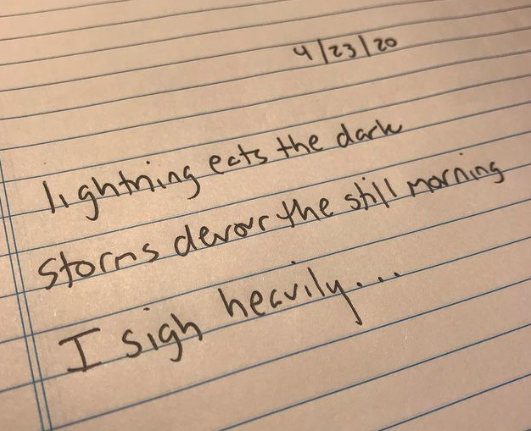 4/23/20
lightning eats the dark
Storms devour the still morning
I sigh heavily...